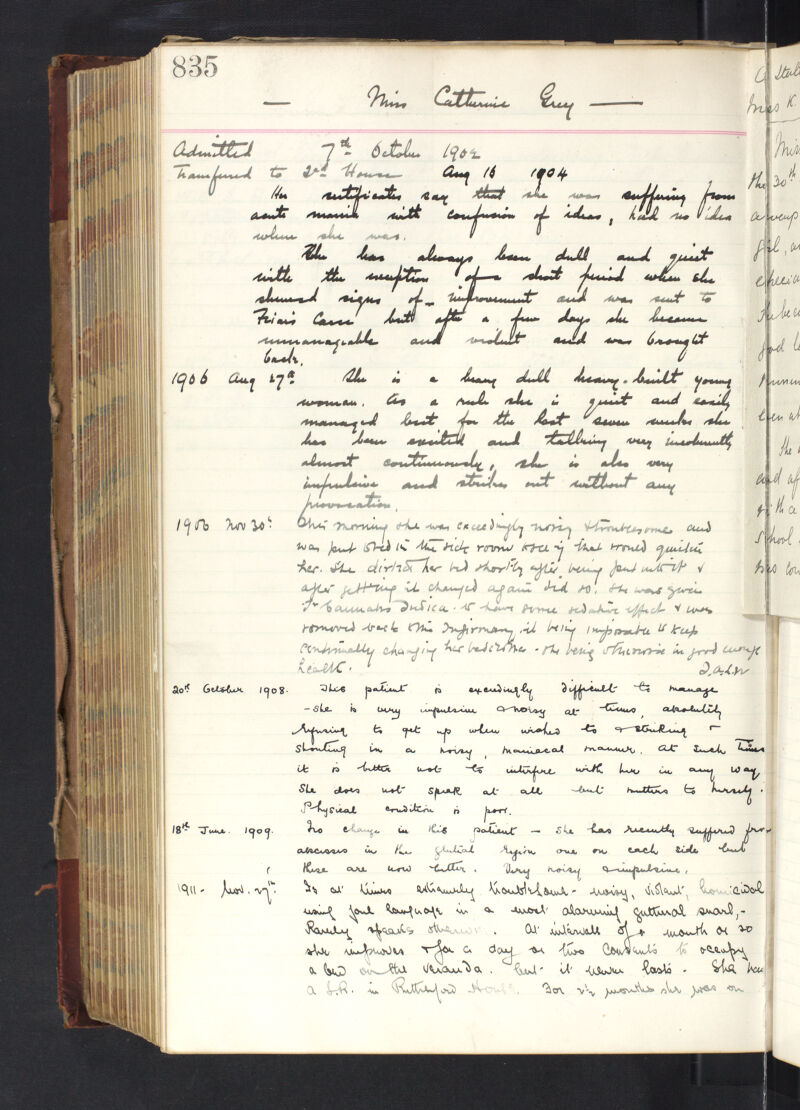 835
— Miss Catherine Grey —
Admitted 7th October 1902
Transferred to 2nd House Aug 16 1904
Her certificates say that she was suffering from
acute mania with confusion of ideas, had no idea
where she was.
She has always been dull and quiet
with the exception of a short period when she
showed signs of improvement and was sent to
Friars Carse but after a few days she became
unmanageable and violent and was brought
back.
1906 Aug 27th She is a heavy dull heavy-built young
woman. As a rule she is quiet and easily
managed but for the last seven weeks she
has been excited and talking very incoherently
almost continuously, she is also very
impulsive and strikes out without any
provocation.
1906 Nov 30th This morning she was exceedingly noisy & troublesome and
was put to bed in the sick room to see if that would quieten
her. She dirtied her bed shortly after being put into it &
after getting it changed again did so. She was given
Tr Cannabis Indica to have some sedative effect & was
removed back to the Infirmary it being impossible to keep
continually changing her bedclothes - she being otherwise in good enough
health.
20th October 1908. This patient is exceedingly difficult to manage
- she is very impulsive & noisy at times, absolutely
refusing to get up when wished to & striking &
shouting in a noisy, maniacal manner. At such times
it is better not to interfere with her in any way
She does not speak at all but mutters to herself.
Physical condition is poor.
18th June. 1909. No change in this patient - she has recently suffered from
abscesses in the gluteal region one on each side but
these are now better. Very noisy & impulsive.
1911 - Nov. 27th. Is at times extremely troublesome - noisy, violent, homicidal
using foul language in a most alarming guttural snarl, -
Rarely speaks otherwise. At intervals of a month or so
she improves & for a day or two consents to occupy
a bed on the veranda. but it never lasts. She has
a S.R. in Rutherford House. For 2½ months she was on
Miss K.
the 30th
girl,
especia
good
even at
The
and af
with a
School